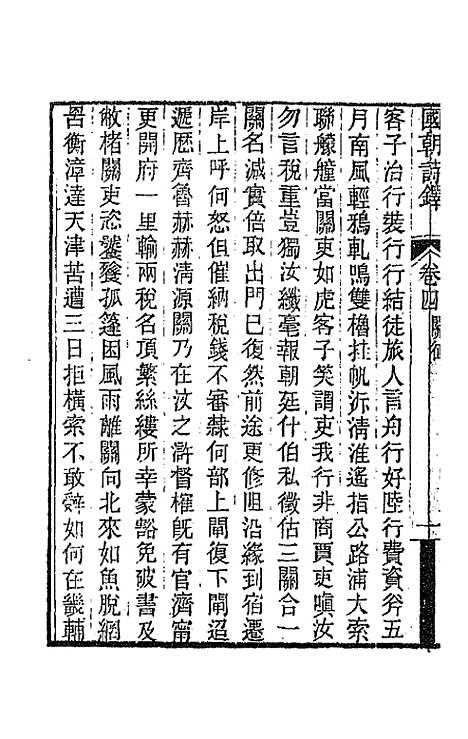 國朝詩鐸 卷四 關征 一
客子治行裝行行結徒旅人言舟行好陸行費資斧五
月南風輕鴉軋鳴雙櫓挂帆泝清淮遙指公路浦大索
聯艨艟當關吏如虎客子笑謂吏我行非商賈吏嗔汝
勿言稅重豈獨汝纖毫報朝廷什伯私徵估三關合一
關名減實倍取出門已復然前途更修阻沿緣到宿遷
岸上呼何怒但催納稅錢不審隸何部上閘復下閘迢
遞歷齊魯赫赫清源關乃在汶之滸督榷旣有官濟甯
更開府一里輸兩稅名項繁絲縷所幸蒙豁免破書及
敝楮關吏恣饕餮孤篷困風雨離關向北來如魚脫網
罟衡漳達天津苦遭三日拒橫索不敢辭如何在畿輔